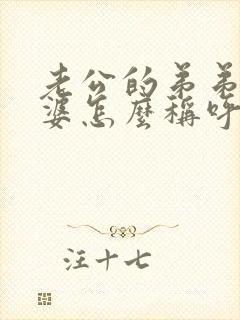 老公的弟弟
婆怎麼稱呼
汪十七